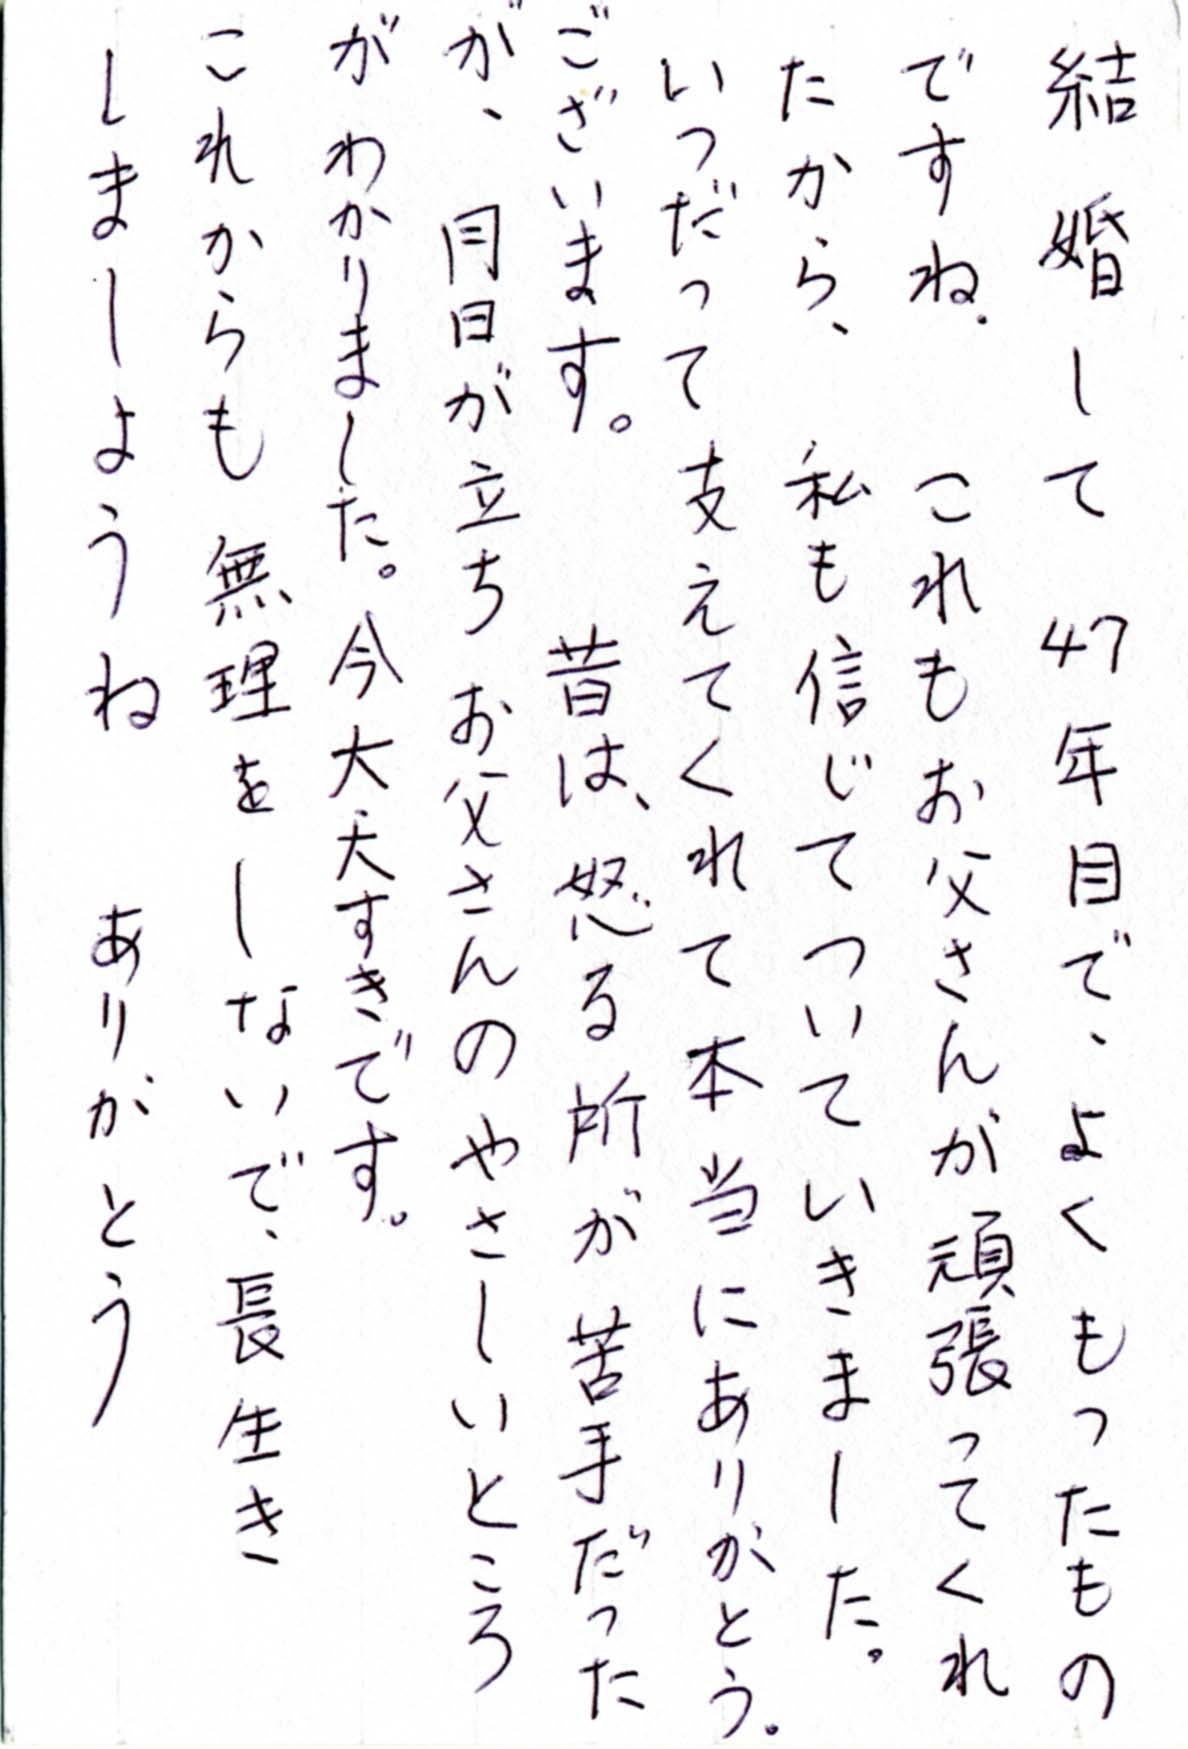 結婚して 47年目で、よくもったもの
ですね. これもお父さんが頑張ってくれ
たから、 私も信じてついていきました。
いつだって支えてくれて本当にありがとう。
ございます。 昔は、怒る所が苦手だった
が、 月日が立ち お父さんのやさしいところ
がわかりました。今大大すきです。
これからも 無理をしないで、長生き
しましようね ありがとう